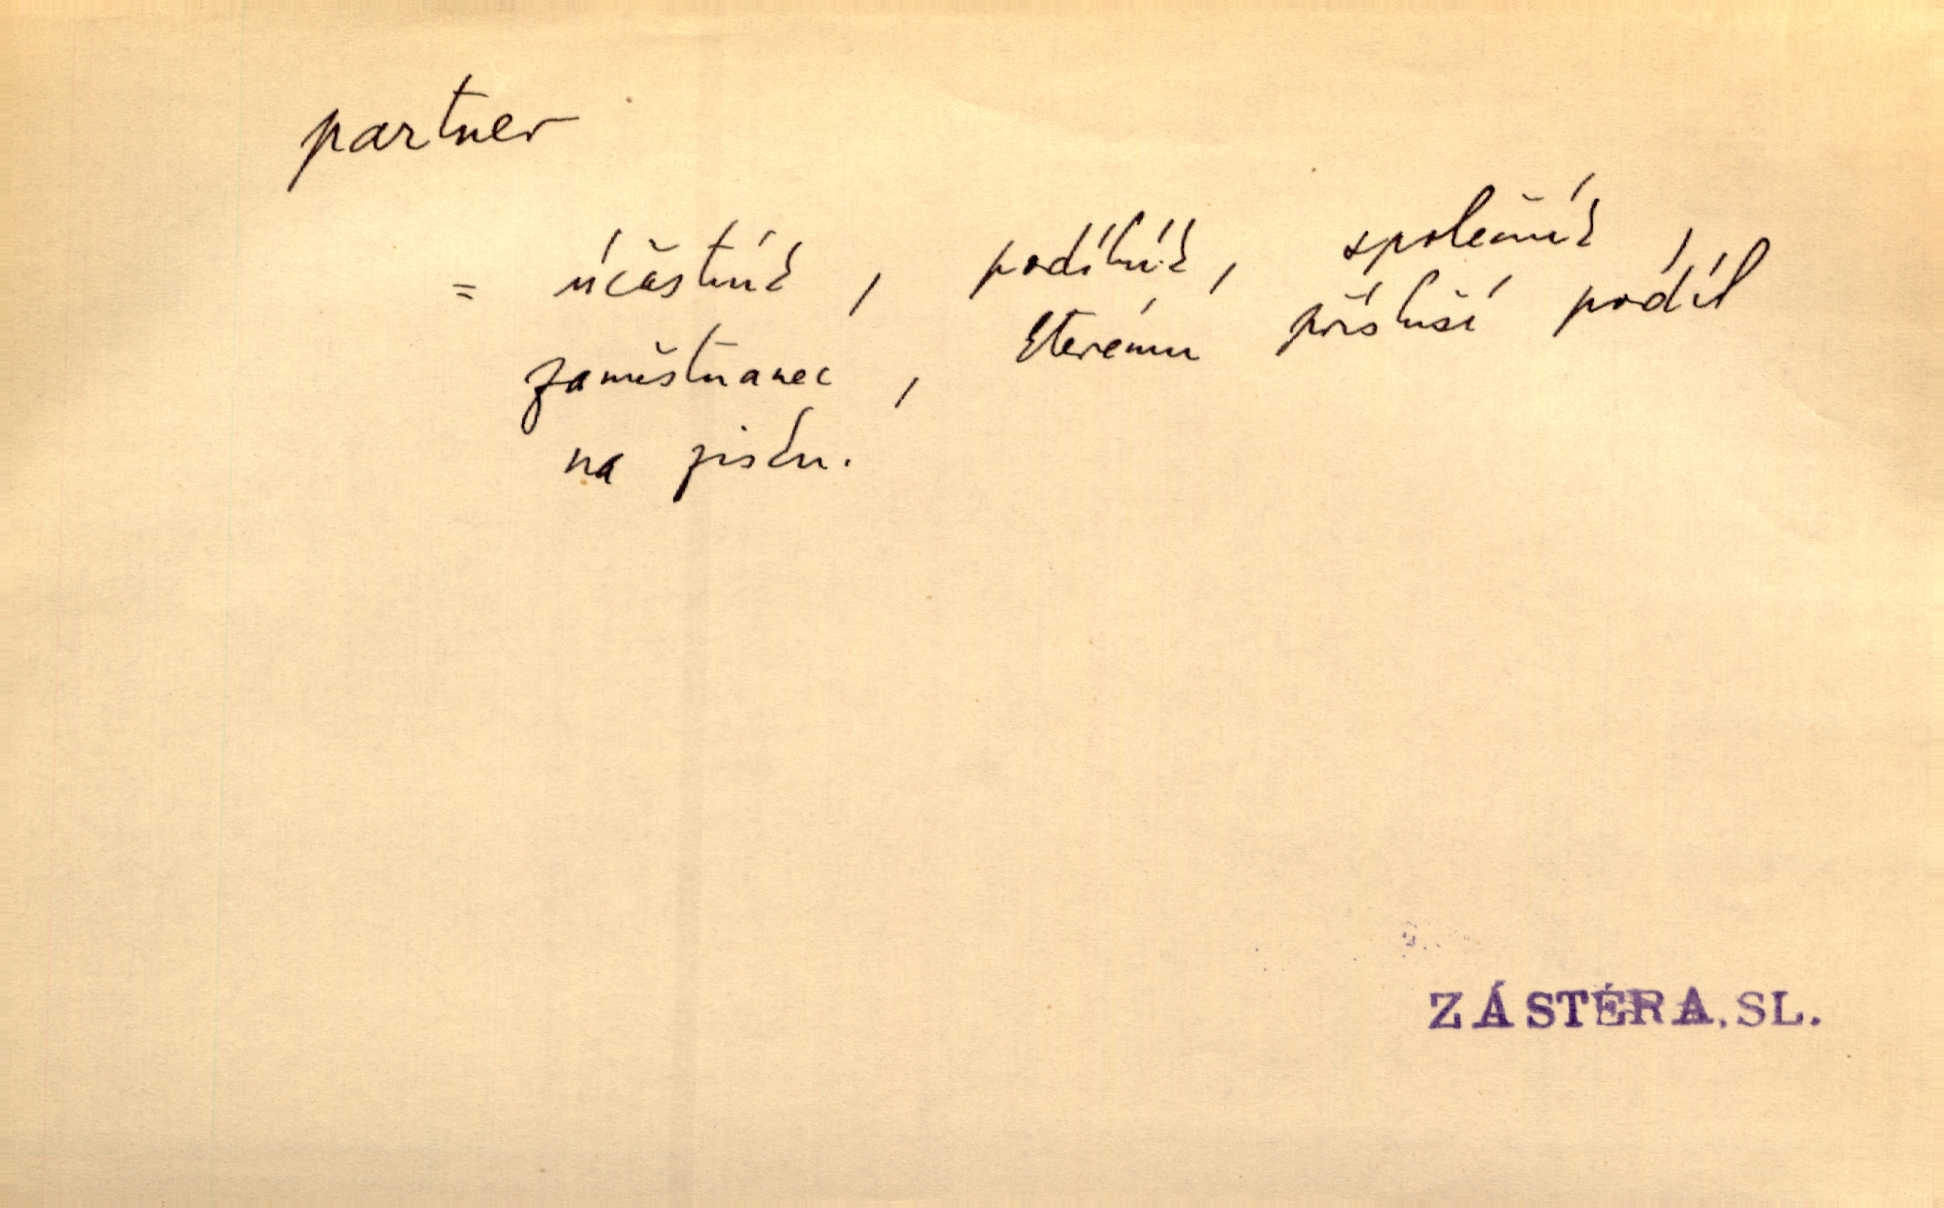 partner
= účastník, podílník, společník,
zaměstnanec, kterému přísluší podíl
na zisku.
ZÁSTĚRA, SL.